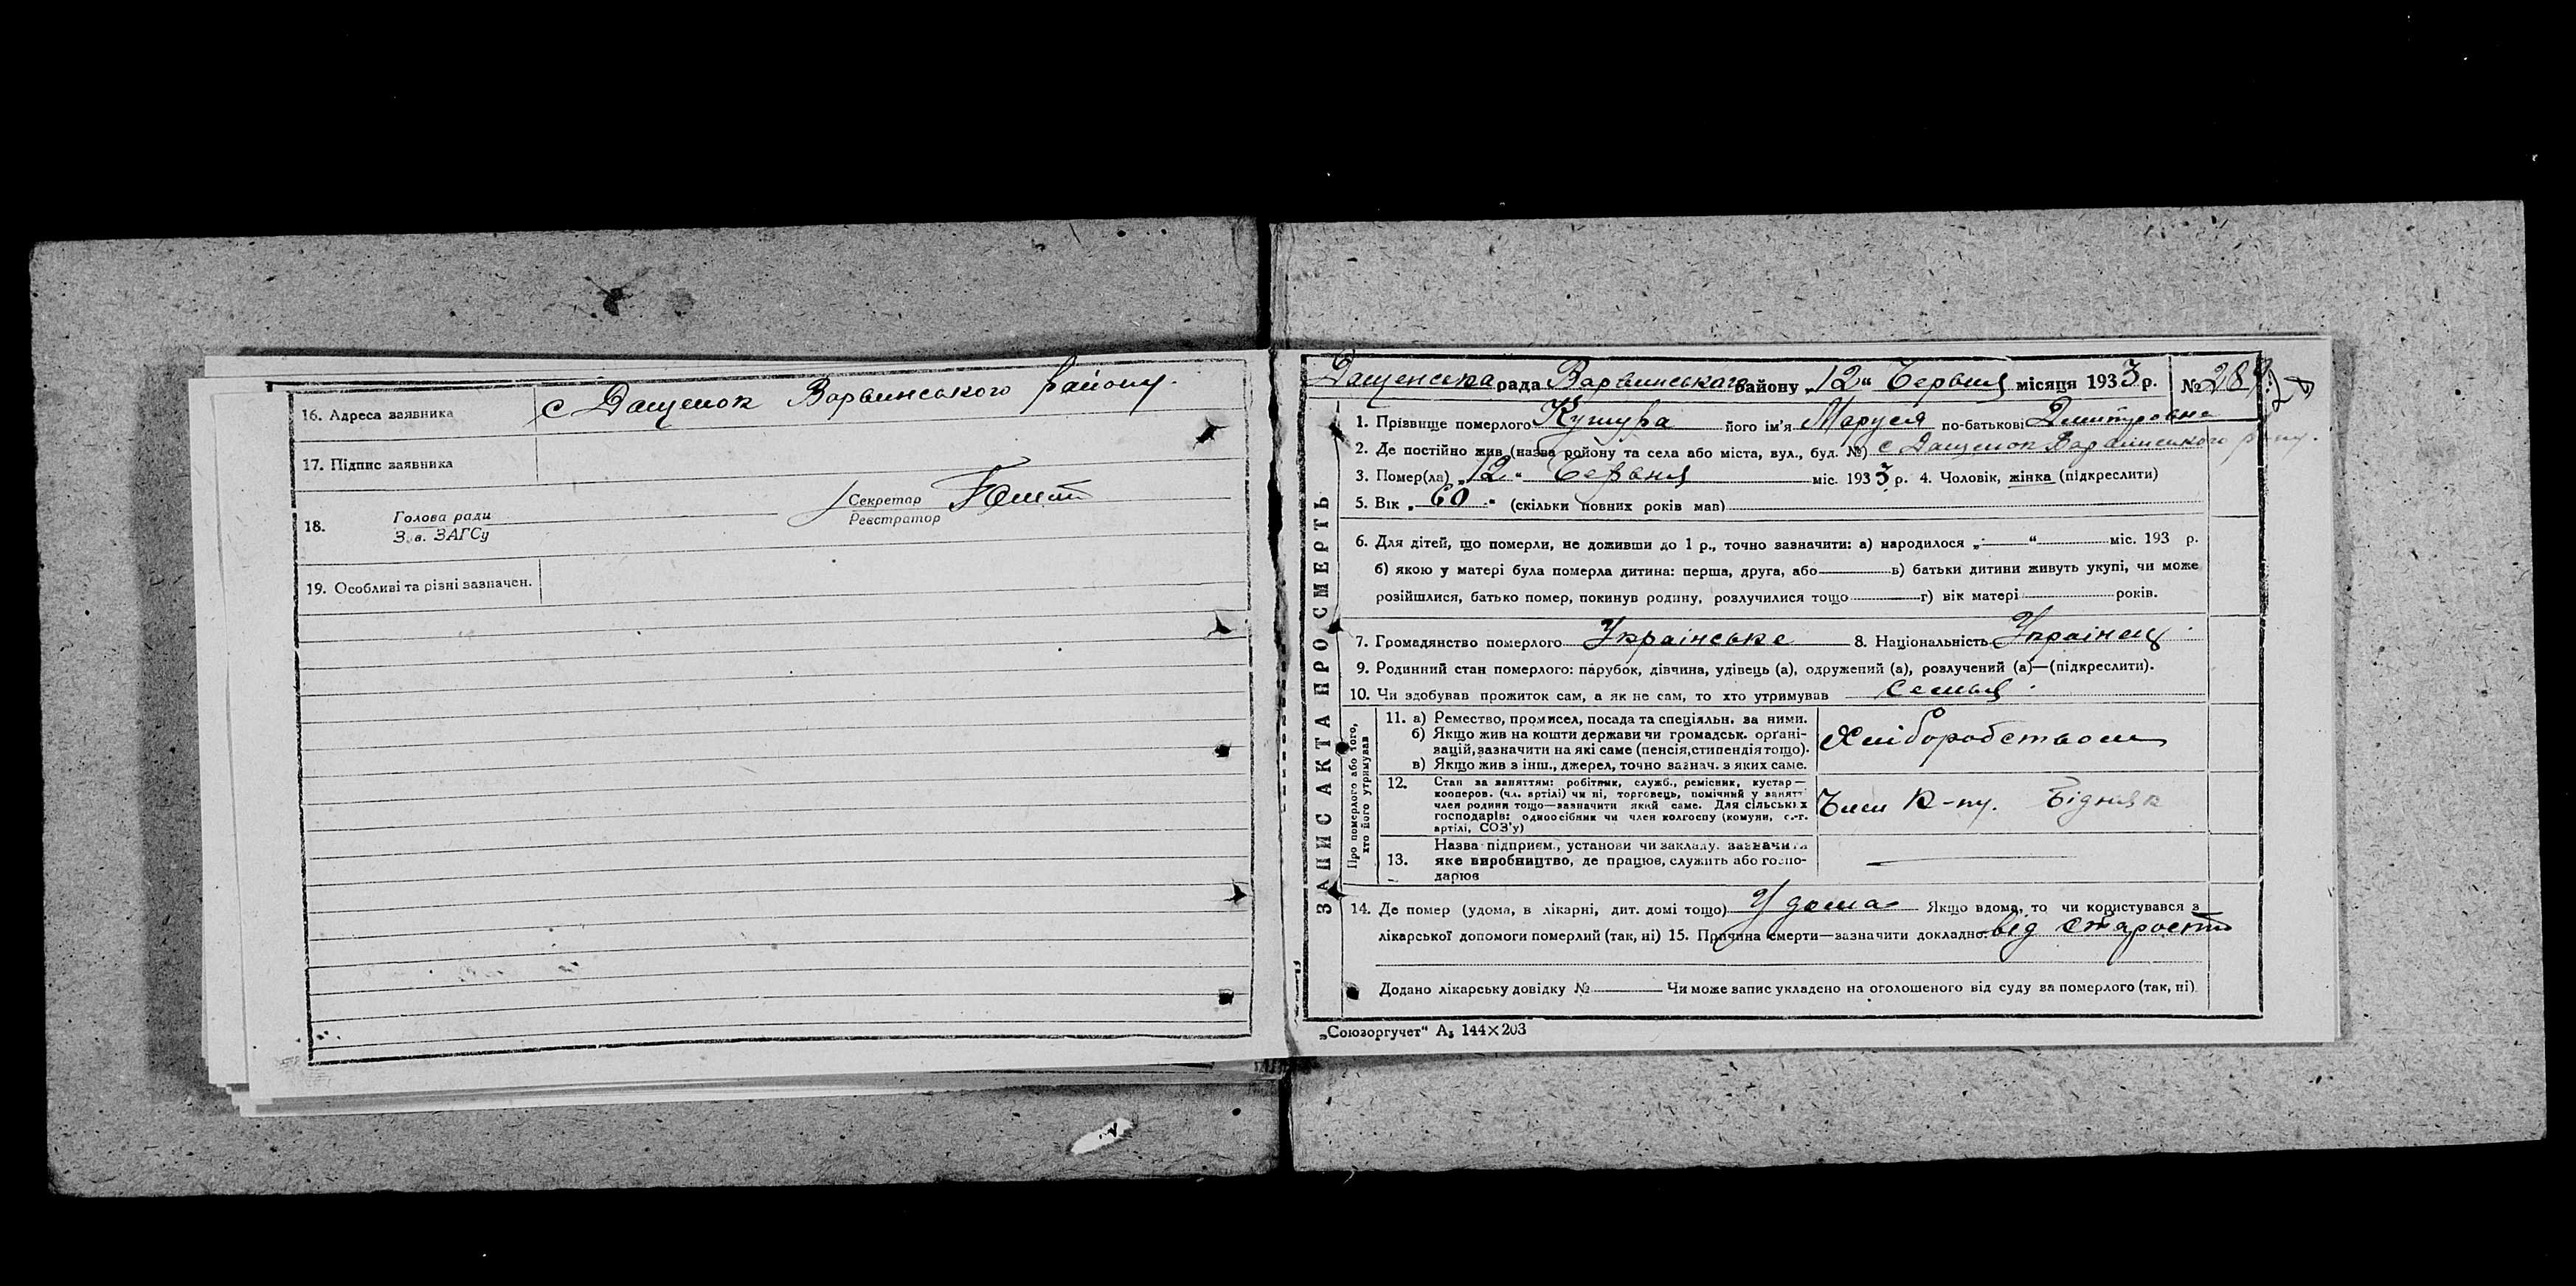 16. Адреса заявника с Дащенок Варвинського району.
17. Підпис заявника
18. Голова ради Секретар
З. в. ЗАГСу Реєстратор
19. Особливі та різні зазначен.
ЗАПИС АКТА ПРО СМЕРТЬ
Дащенська рада Варвинського району „12" Червня місяця 1933 р. №
1. Прізвище померлого його ім'я Маруся по-батькові Дмитровна
2. Де постійно жив (назва району та села або міста, вул., буд. №) с Дащенок Варвинського р-ну.
3. Помер(ла) „12" Червня міс. 1933 р. 4. Чоловік, жінка (підкреслити)
5. Вік „60" (скільки повних років мав)
6. Для дітей, що померли, не доживши до 1 р., точно зазначити: а) народилося „ " міс. 193 р.
б) якою у матері була померла дитина: перша, друга, або в) батьки дитини живуть укупі, чи може
розійшлися, батько помер, покинув родину, розлучилися тощо г) вік матері років.
7. Громадянство померлого Українське 8. Національність Українец
9. Родинний стан померлого: парубок, дівчина, удівець (а), одружений (а), розлучений (а)—(підкреслити).
10. Чи здобував прожиток сам, а як не сам, то хто утримував семья
Про померлого або того, хто його утримував
11. а) Ремество, промисел, посада та спеціяльн. за ними.
б) Якщо жив на кошти держави чи громадськ. органі-
зацій, зазначити на які саме (пенсія, стипендія тощо).
в) Якщо жив з інш., джерел, точно зазнач. з яких саме.
Хліборобством
12. Стан за заняттям: робітник, служб., ремісник, кустар—
кооперов. (чл. артілі) чи ні, торговець, помічний у занятт
член родини тощо—зазначити який саме. Для сільських
господарів: одноосібник чи член колгоспу (комуни, с.-г.
артілі, СОЗ'у)
Член К-пу. Бідняк
13. Назва підприєм., установи чи закладу. зазначити
яке виробництво, де працює, служить або госпо-
дарює
14. Де помер (удома, в лікарні, дит. домі тощо) У дома Якщо вдома, то чи користувався з
лікарської допомоги померлий (так, ні) 15. Причина смерти—зазначити докладно: від старости
Додано лікарську довідку № Чи може запис укладено на оголошеного від суду за померлого (так, ні).
„Союзоргучет" А₅ 144×203